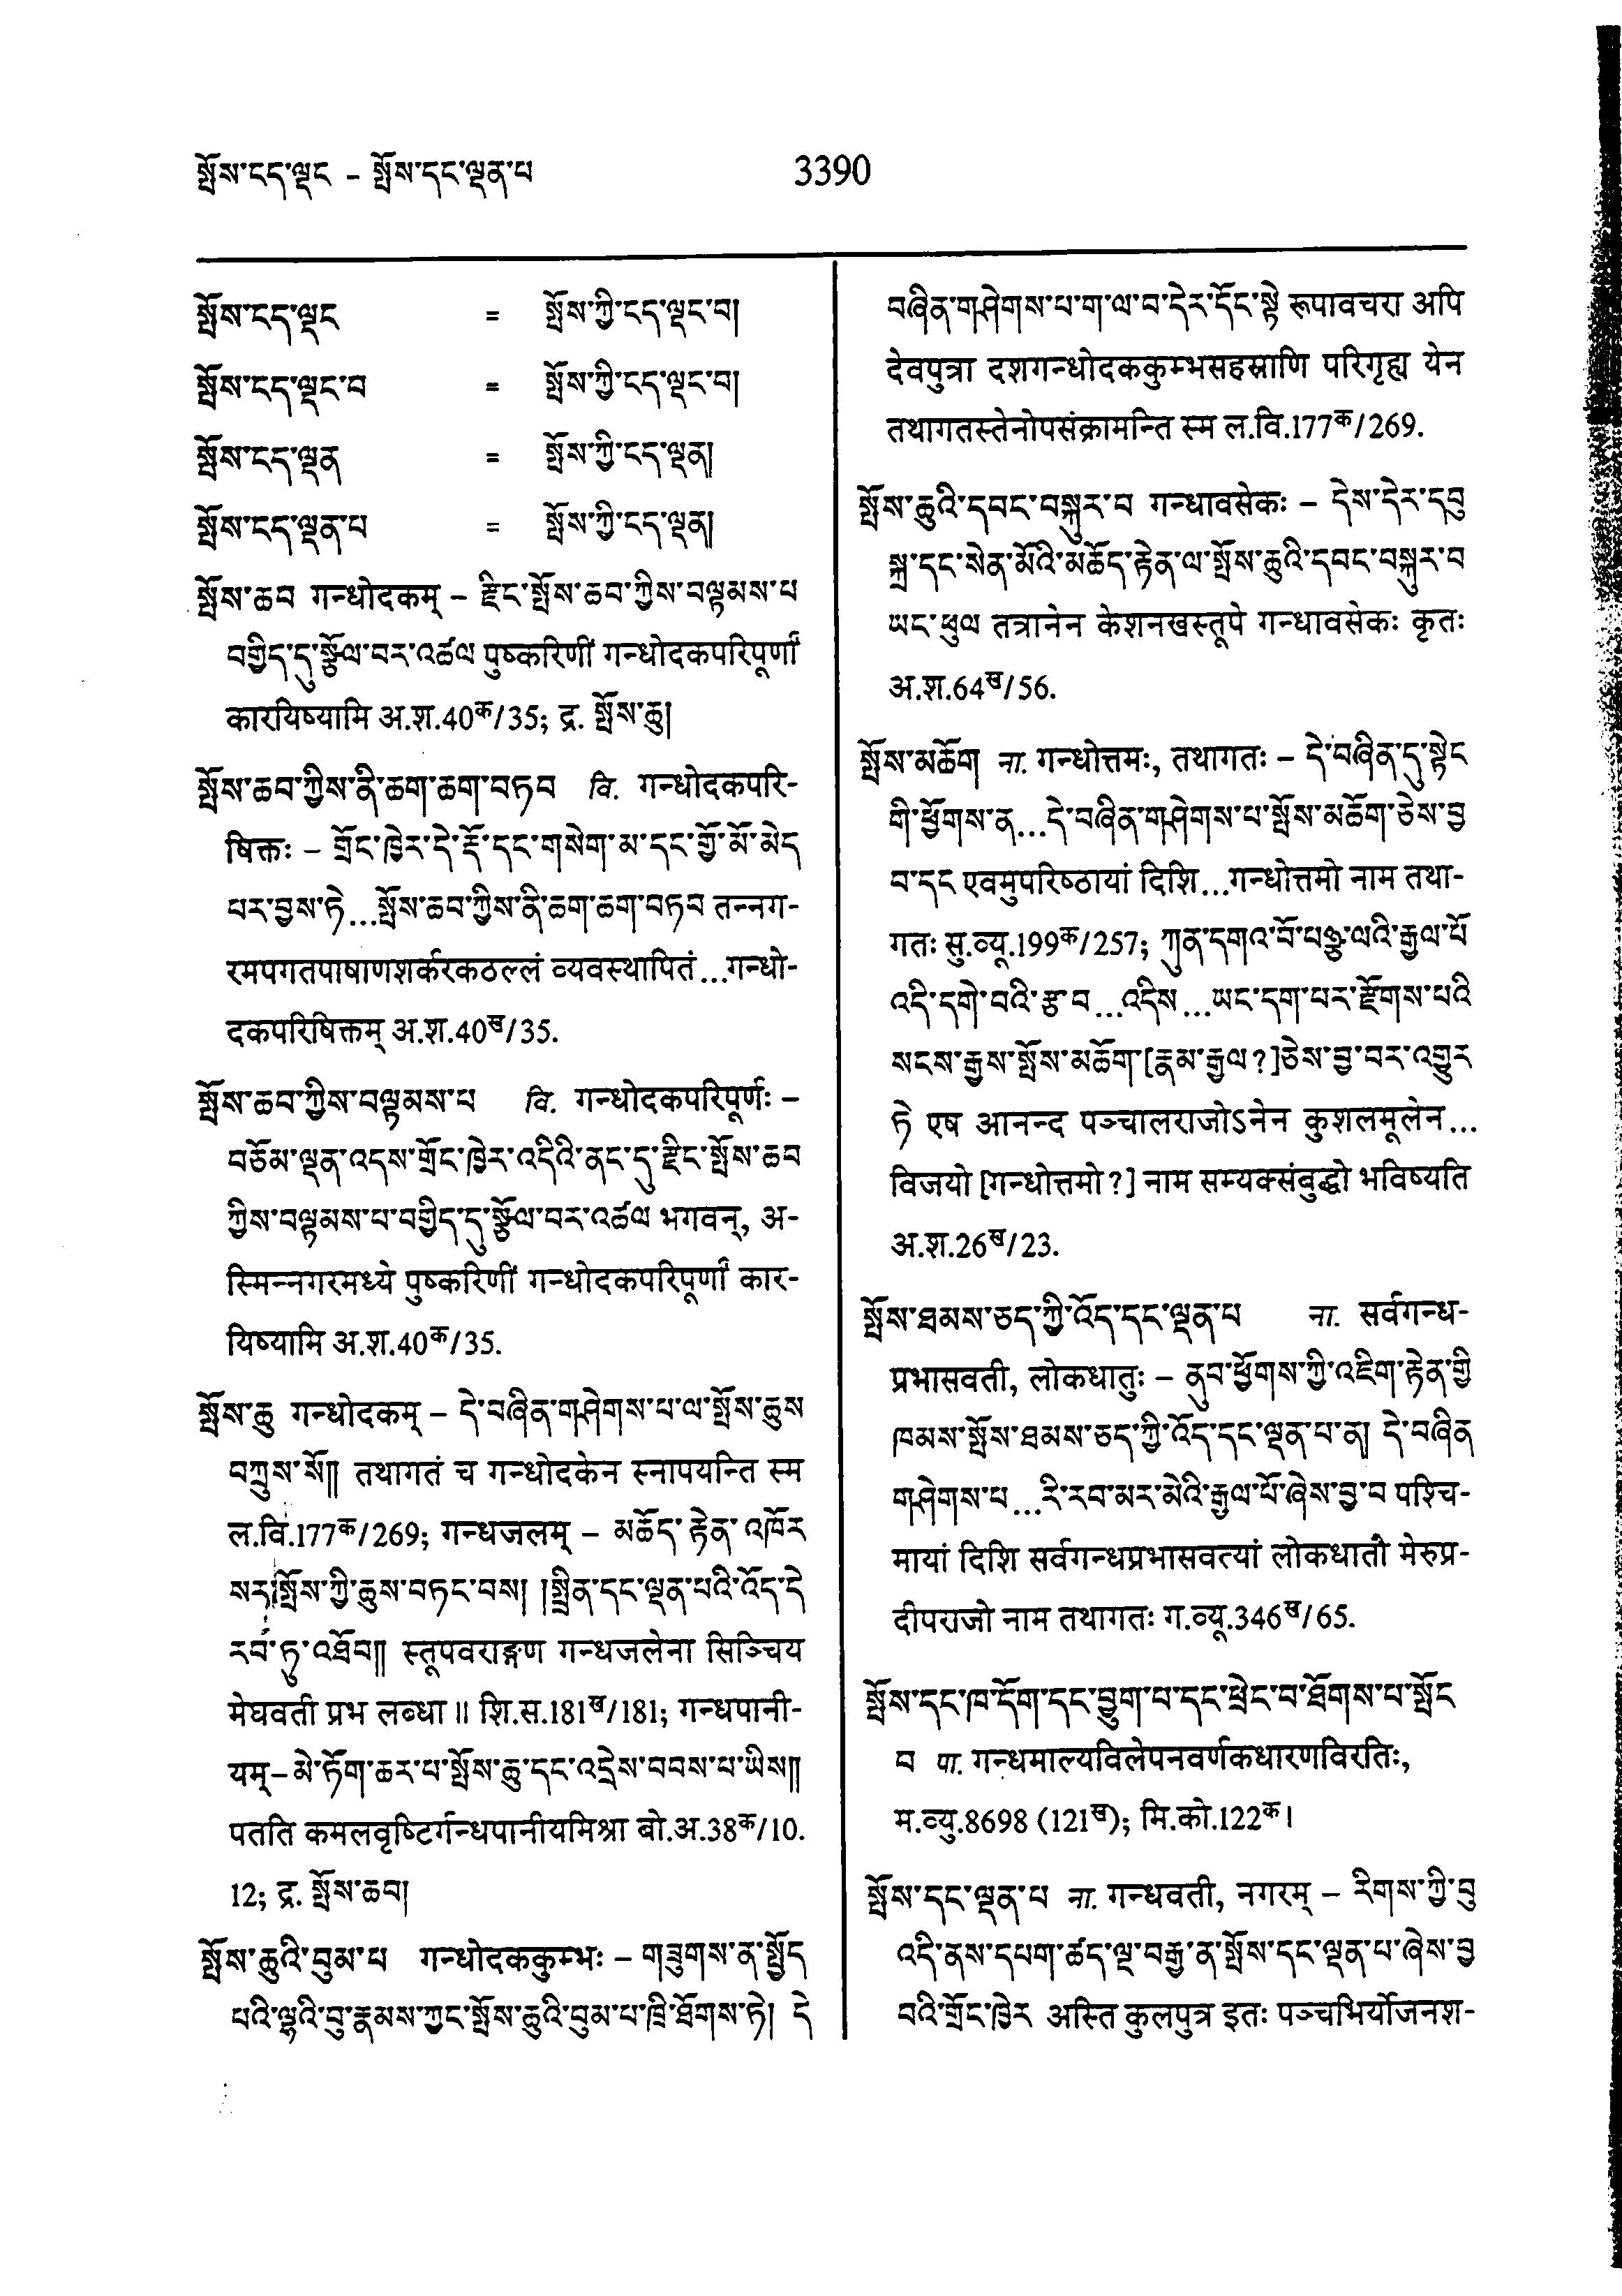 སྤོས་ངད་ལྡང – སྤོས་དང་ལྡན་པ
3390
སྤོས་ངད་ལྡང = སྤོས་ཀྱི་ངད་ལྡང་བ།
སྤོས་ངད་ལྡང་བ = སྤོས་ཀྱི་ངད་ལྡང་བ།
སྤོས་ངད་ལྡན = སྤོས་ཀྱི་ངད་ལྡན།
སྤོས་ངད་ལྡན་པ = སྤོས་ཀྱི་ངད་ལྡན།
སྤོས་ཆབ गन्धोदकम् – རྫིང་སྤོས་ཆབ་ཀྱིས་བལྟམས་པ
བགྱིད་དུ་སྩོལ་བར་འཚལ पुष्करिणीं गन्धोदकपरिपूर्णां
कारयिष्यामि अ.श.40क/35; द्र. སྤོས་ཆུ།
སྤོས་ཆབ་ཀྱིས་ནི་ཆག་ཆག་བཏབ वि. गन्धोदकपरि-
षिक्तः – གྲོང་ཁྱེར་དེ་རྡོ་དང་གསེག་མ་དང་གྱོ་མོ་མེད
པར་བྱས་ཏེ...སྤོས་ཆབ་ཀྱིས་ནི་ཆག་ཆག་བཏབ तन्नग-
रमपगतपाषाणशर्करकठल्लं व्यवस्थापितं...गन्धो-
दकपरिषिक्तम् अ.श.40ख/35.
སྤོས་ཆབ་ཀྱིས་བལྟམས་པ वि. गन्धोदकपरिपूर्णः –
བཅོམ་ལྡན་འདས་གྲོང་ཁྱེར་འདིའི་ནང་དུ་རྫིང་སྤོས་ཆབ
ཀྱིས་བལྟམས་པ་བགྱིད་དུ་སྩོལ་བར་འཚལ भगवन्, अ-
स्मिन्नगरमध्ये पुष्करिणीं गन्धोदकपरिपूर्णां कार-
यिष्यामि अ.श.40क/35.
སྤོས་ཆུ गन्धोदकम् – དེ་བཞིན་གཤེགས་པ་ལ་སྤོས་ཆུས
བཀྲུས་སོ༎ तथागतं च गन्धोदकेन स्नापयन्ति स्म
ल.वि.177क/269; गन्धजलम् – མཆོད་རྟེན་འཁོར
སར་སྤོས་ཀྱི་ཆུས་བཏང་བས། །སྤྲིན་དང་ལྡན་པའི་འོད་དེ
རབ་ཏུ་འཐོབ༎ स्तूपवराङ्गण गन्धजलेना सिञ्चिय
मेघवती प्रभ लब्धा ॥ शि.स.181ख/181; गन्धपानी-
यम् – མེ་ཏོག་ཆར་པ་སྤོས་ཆུ་དང་འདྲེས་བབས་པ་ཡིས༎
पतति कमलवृष्टिर्गन्धपानीयमिश्रा बो.अ.38क/10.
12; द्र. སྤོས་ཆབ།
སྤོས་ཆུའི་བུམ་པ गन्धोदककुम्भः – གཟུགས་ན་སྤྱོད
པའི་ལྷའི་བུ་རྣམས་ཀྱང་སྤོས་ཆུའི་བུམ་པ་ཁྲི་ཐོགས་ཏེ། དེ
བཞིན་གཤེགས་པ་ག་ལ་བ་དེར་དོང་སྟེ रूपावचरा अपि
देवपुत्रा दशगन्धोदककुम्भसहस्राणि परिगृह्य येन
तथागतस्तेनोपसंक्रामन्ति स्म ल.वि.177क/269.
སྤོས་ཆུའི་དབང་བསྐུར་བ गन्धावसेकः – དེས་དེར་དབུ
སྐྲ་དང་སེན་མོའི་མཆོད་རྟེན་ལ་སྤོས་ཆུའི་དབང་བསྐུར་བ
ཡང་ཕུལ तत्रानेन केशनखस्तूपे गन्धावसेकः कृतः
अ.श.64ख/56.
སྤོས་མཆོག ना. गन्धोत्तमः, तथागतः – དེ་བཞིན་དུ་སྟེང
གི་ཕྱོགས་ན...དེ་བཞིན་གཤེགས་པ་སྤོས་མཆོག་ཅེས་བྱ
བ་དང एवमुपरिष्ठायां दिशि...गन्धोत्तमो नाम तथा-
गतः सु.व्यू.199क/257; ཀུན་དགའ་བོ་པཉྩ་ལའི་རྒྱལ་པོ
འདི་དགེ་བའི་རྩ་བ...འདིས...ཡང་དག་པར་རྫོགས་པའི
སངས་རྒྱས་སྤོས་མཆོག་[རྣམ་རྒྱལ?]ཅེས་བྱ་བར་འགྱུར
ཏེ एष आनन्द पञ्चालराजोऽनेन कुशलमूलेन...
विजयो [गन्धोत्तमो?] नाम सम्यक्संबुद्धो भविष्यति
अ.श.26ख/23.
སྤོས་ཐམས་ཅད་ཀྱི་འོད་དང་ལྡན་པ ना. सर्वगन्ध-
प्रभासवती, लोकधातुः – ནུབ་ཕྱོགས་ཀྱི་འཇིག་རྟེན་གྱི
ཁམས་སྤོས་ཐམས་ཅད་ཀྱི་འོད་དང་ལྡན་པ་ན། དེ་བཞིན
གཤེགས་པ...རི་རབ་མར་མེའི་རྒྱལ་པོ་ཞེས་བྱ་བ पश्चि-
मायां दिशि सर्वगन्धप्रभासवत्यां लोकधातौ मेरुप्र-
दीपराजो नाम तथागतः ग.व्यू.346ख/65.
སྤོས་དང་ཁ་དོག་དང་བྱུག་པ་དང་ཕྲེང་བ་ཐོགས་པ་སྤོང
བ पा. गन्धमाल्यविलेपनवर्णकधारणविरतिः,
म.व्यु.8698 (121ख); मि.को.122क।
སྤོས་དང་ལྡན་པ ना. गन्धवती, नगरम् – རིགས་ཀྱི་བུ
འདི་ནས་དཔག་ཚད་ལྔ་བརྒྱ་ན་སྤོས་དང་ལྡན་པ་ཞེས་བྱ
བའི་གྲོང་ཁྱེར अस्ति कुलपुत्र इतः पञ्चभिर्योजनश-